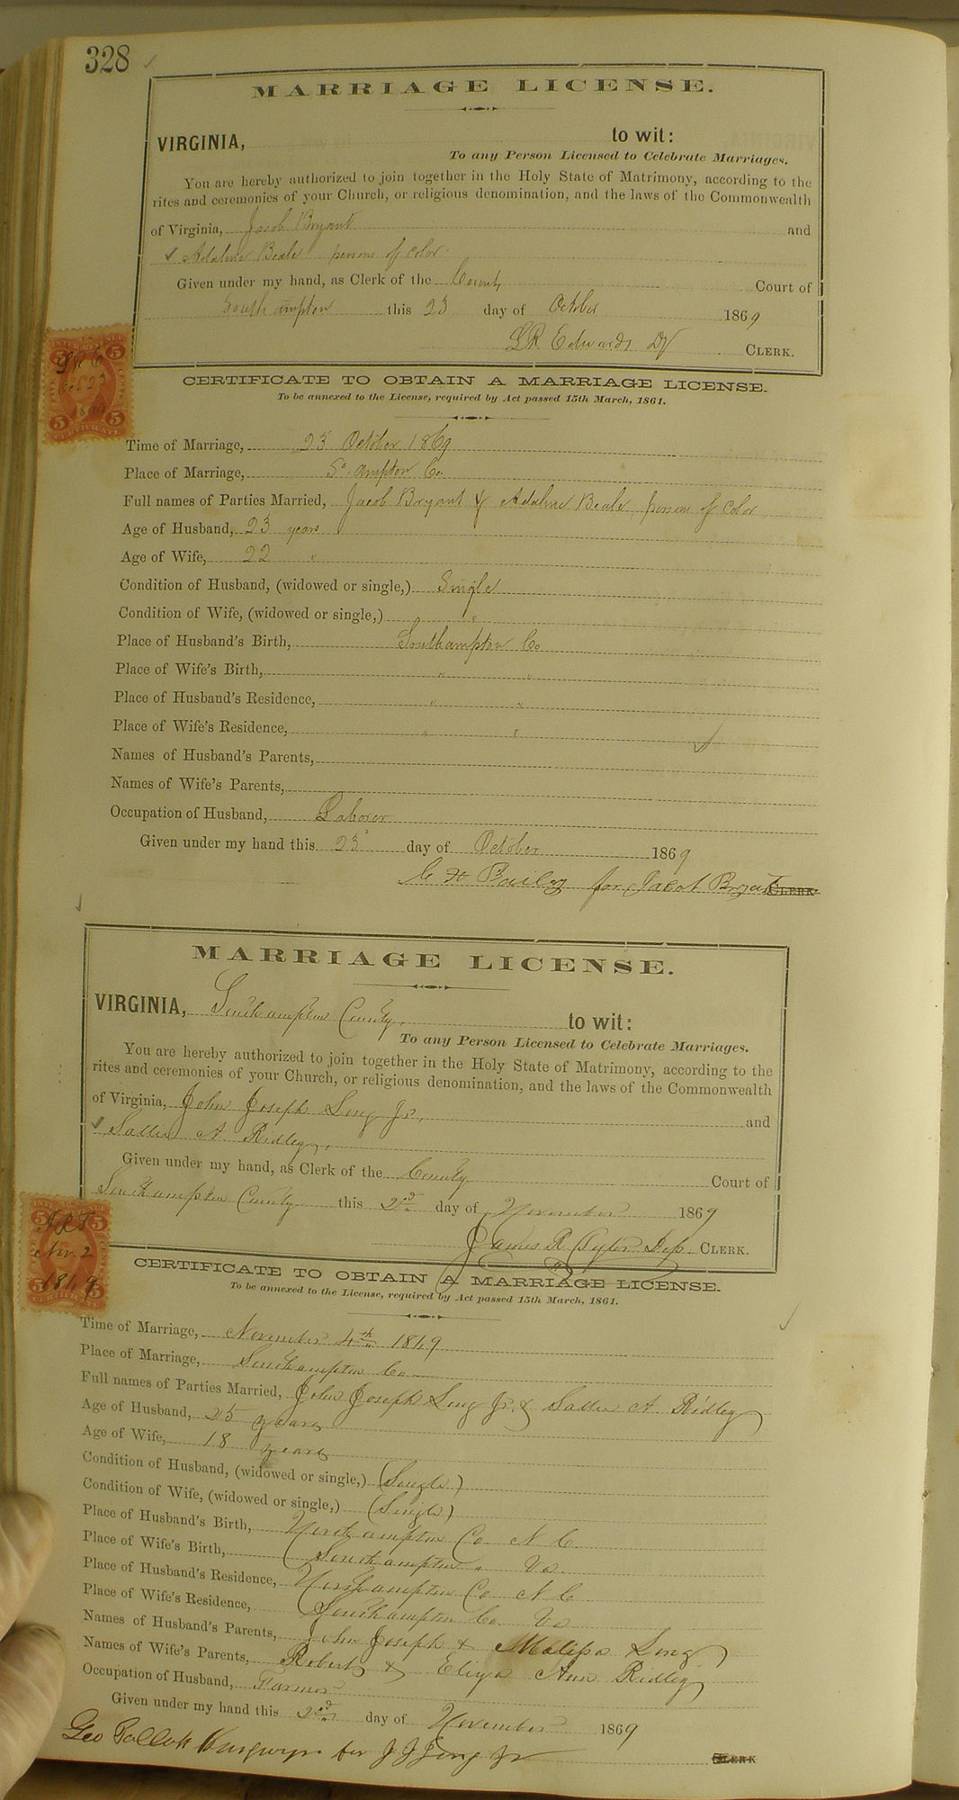 328
MARRIAGE LICENSE.
VIRGINIA, to wit:
To any Person Licensed to Celebrate Marriages.
You are hereby authorized to join together in the Holy State of Matrimony, according to the
rites and ceremonies of your Church, or religious denomination, and the laws of the Commonwealth
of Virginia, Jacob Bryant and
Adaline Beale persons of color
Given under my hand, as Clerk of the County Court of
Southampton this 23 day of October 1869
L R Edwards Dy CLERK.
5 5
Oct 23
5 5
CERTIFICATE
CERTIFICATE TO OBTAIN A MARRIAGE LICENSE.
To be annexed to the License, required by Act passed 15th March, 1861.
Time of Marriage, 23 October 1869
Place of Marriage, So ampton Co
Full names of Parties Married, Jacob Bryant & Adaline Beale persons of color
Age of Husband, 23 years
Age of Wife, 22 "
Condition of Husband, (widowed or single,) Single
Condition of Wife, (widowed or single,) "
Place of Husband's Birth, Southampton Co
Place of Wife's Birth, " "
Place of Husband's Residence, " "
Place of Wife's Residence, " "
Names of Husband's Parents,
Names of Wife's Parents,
Occupation of Husband, Laborer
Given under my hand this 23 day of October 1869
for Jacob Bryant CLERK.
MARRIAGE LICENSE.
VIRGINIA, Southampton County, to wit:
To any Person Licensed to Celebrate Marriages.
You are hereby authorized to join together in the Holy State of Matrimony, according to the
rites and ceremonies of your Church, or religious denomination, and the laws of the Commonwealth
of Virginia, John Joseph Long Jr. and
Sallie A. Ridley,
Given under my hand, as Clerk of the County Court of
Southampton County this 2nd day of November 1869
James R. Dep. CLERK.
5 5
Nov. 2
1869
5 5
CERTIFICATE
CERTIFICATE TO OBTAIN A MARRIAGE LICENSE.
To be annexed to the License, required by Act passed 15th March, 1861.
Time of Marriage, November 4th 1869
Place of Marriage, Southampton Co
Full names of Parties Married, John Joseph Long Jr. & Sallie A. Ridley
Age of Husband, 25 years
Age of Wife, 18 years
Condition of Husband, (widowed or single,) (Single)
Condition of Wife, (widowed or single,) (Single)
Place of Husband's Birth, Northampton Co N C
Place of Wife's Birth, Southampton " Va
Place of Husband's Residence, Northampton Co N C
Place of Wife's Residence, Southampton Co Va
Names of Husband's Parents, John Joseph & Long
Names of Wife's Parents, Robert & Eliza Ann Ridley
Occupation of Husband, Farmer
Given under my hand this 2nd day of November 1869
Geo Pollok Burgwyn for J J Long Jr CLERK